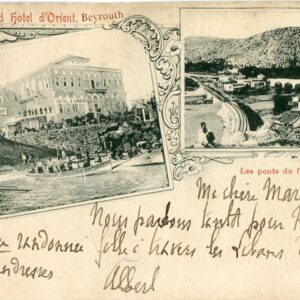 d Hotel d'Orient, Beyrouth
Les ponts du f
Ma chère Mar
Nous partons tantôt pour
randonnée à travers les Libans
tendresses
Albert